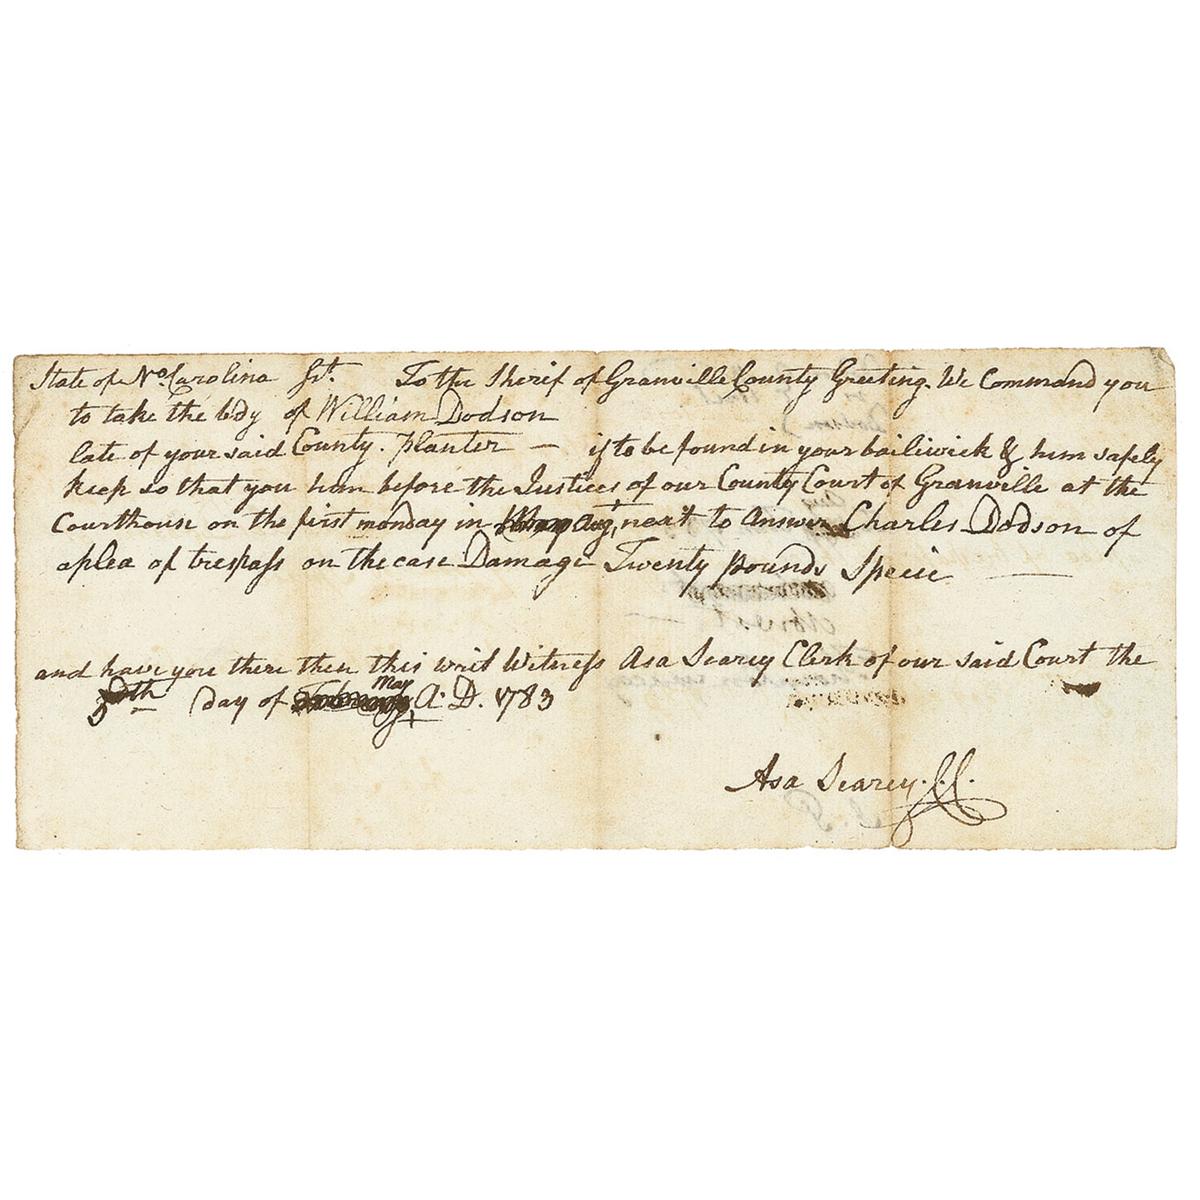 State of No. Carolina Sst. To the Sherif of Granville County Greeting. We Command you
to take the body of William Dodson
late of your said County. planter — if to be found in your bailiwick & him safely
keep so that you him before the Justices of our County Court of Granville at the
Courthouse on the first monday in Augt next to Answer Charles Dodson of
a plea of trespass on the case Damage Twenty pounds Specie —
and have you there then this writ Witness Asa Searcy Clerk of our said Court the
5th day of May A. D. 1783
Asa Searcy. C.C.